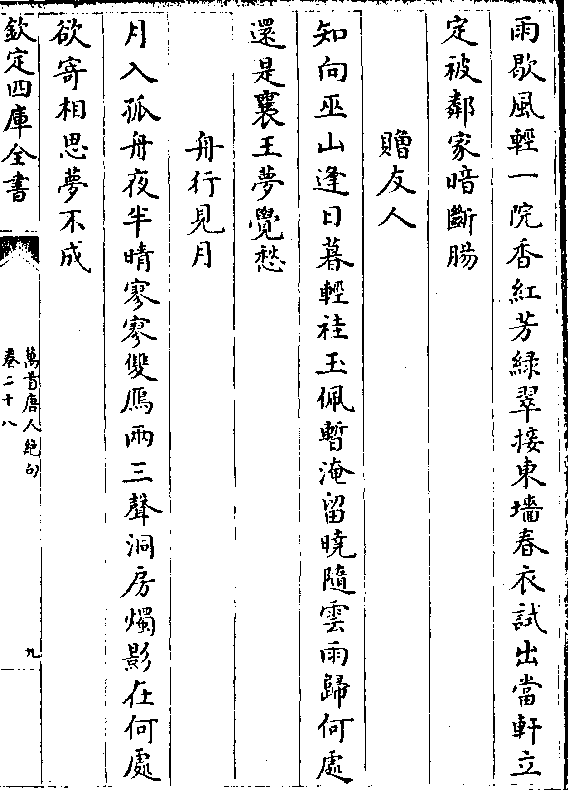 雨歇風輕一院香紅芳緑翠接東墻春衣試出當軒立
定被鄰家暗斷腸
贈友人
知向巫山逢日暮輕袿玉佩暫淹留曉隨雲雨歸何處
還是襄王夢覺愁
舟行見月
月入孤舟夜半晴寥寥雙鴈兩三聲洞房燭影在何處
欲寄相思夢不成
欽定四庫全書
萬首唐人絶句
卷二十八
九